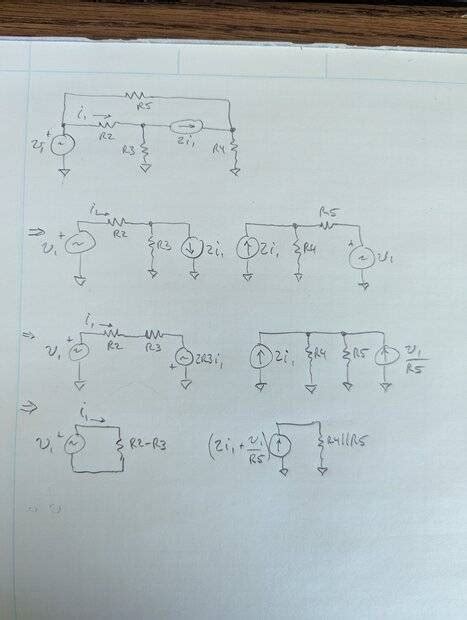 R5
i₁ →
R2
R3
2i₁
R4
+
v₁
⇒ v₁ + i₁ → R2 R3 2i₁ 2i₁ R4 R5 + v₁
⇒ v₁ + i₁ → R2 R3 + 2R3i₁ 2i₁ R4 R5 v₁/R5
⇒ v₁ + i₁ → R2-R3 (2i₁ + v₁/R5) R4||R5